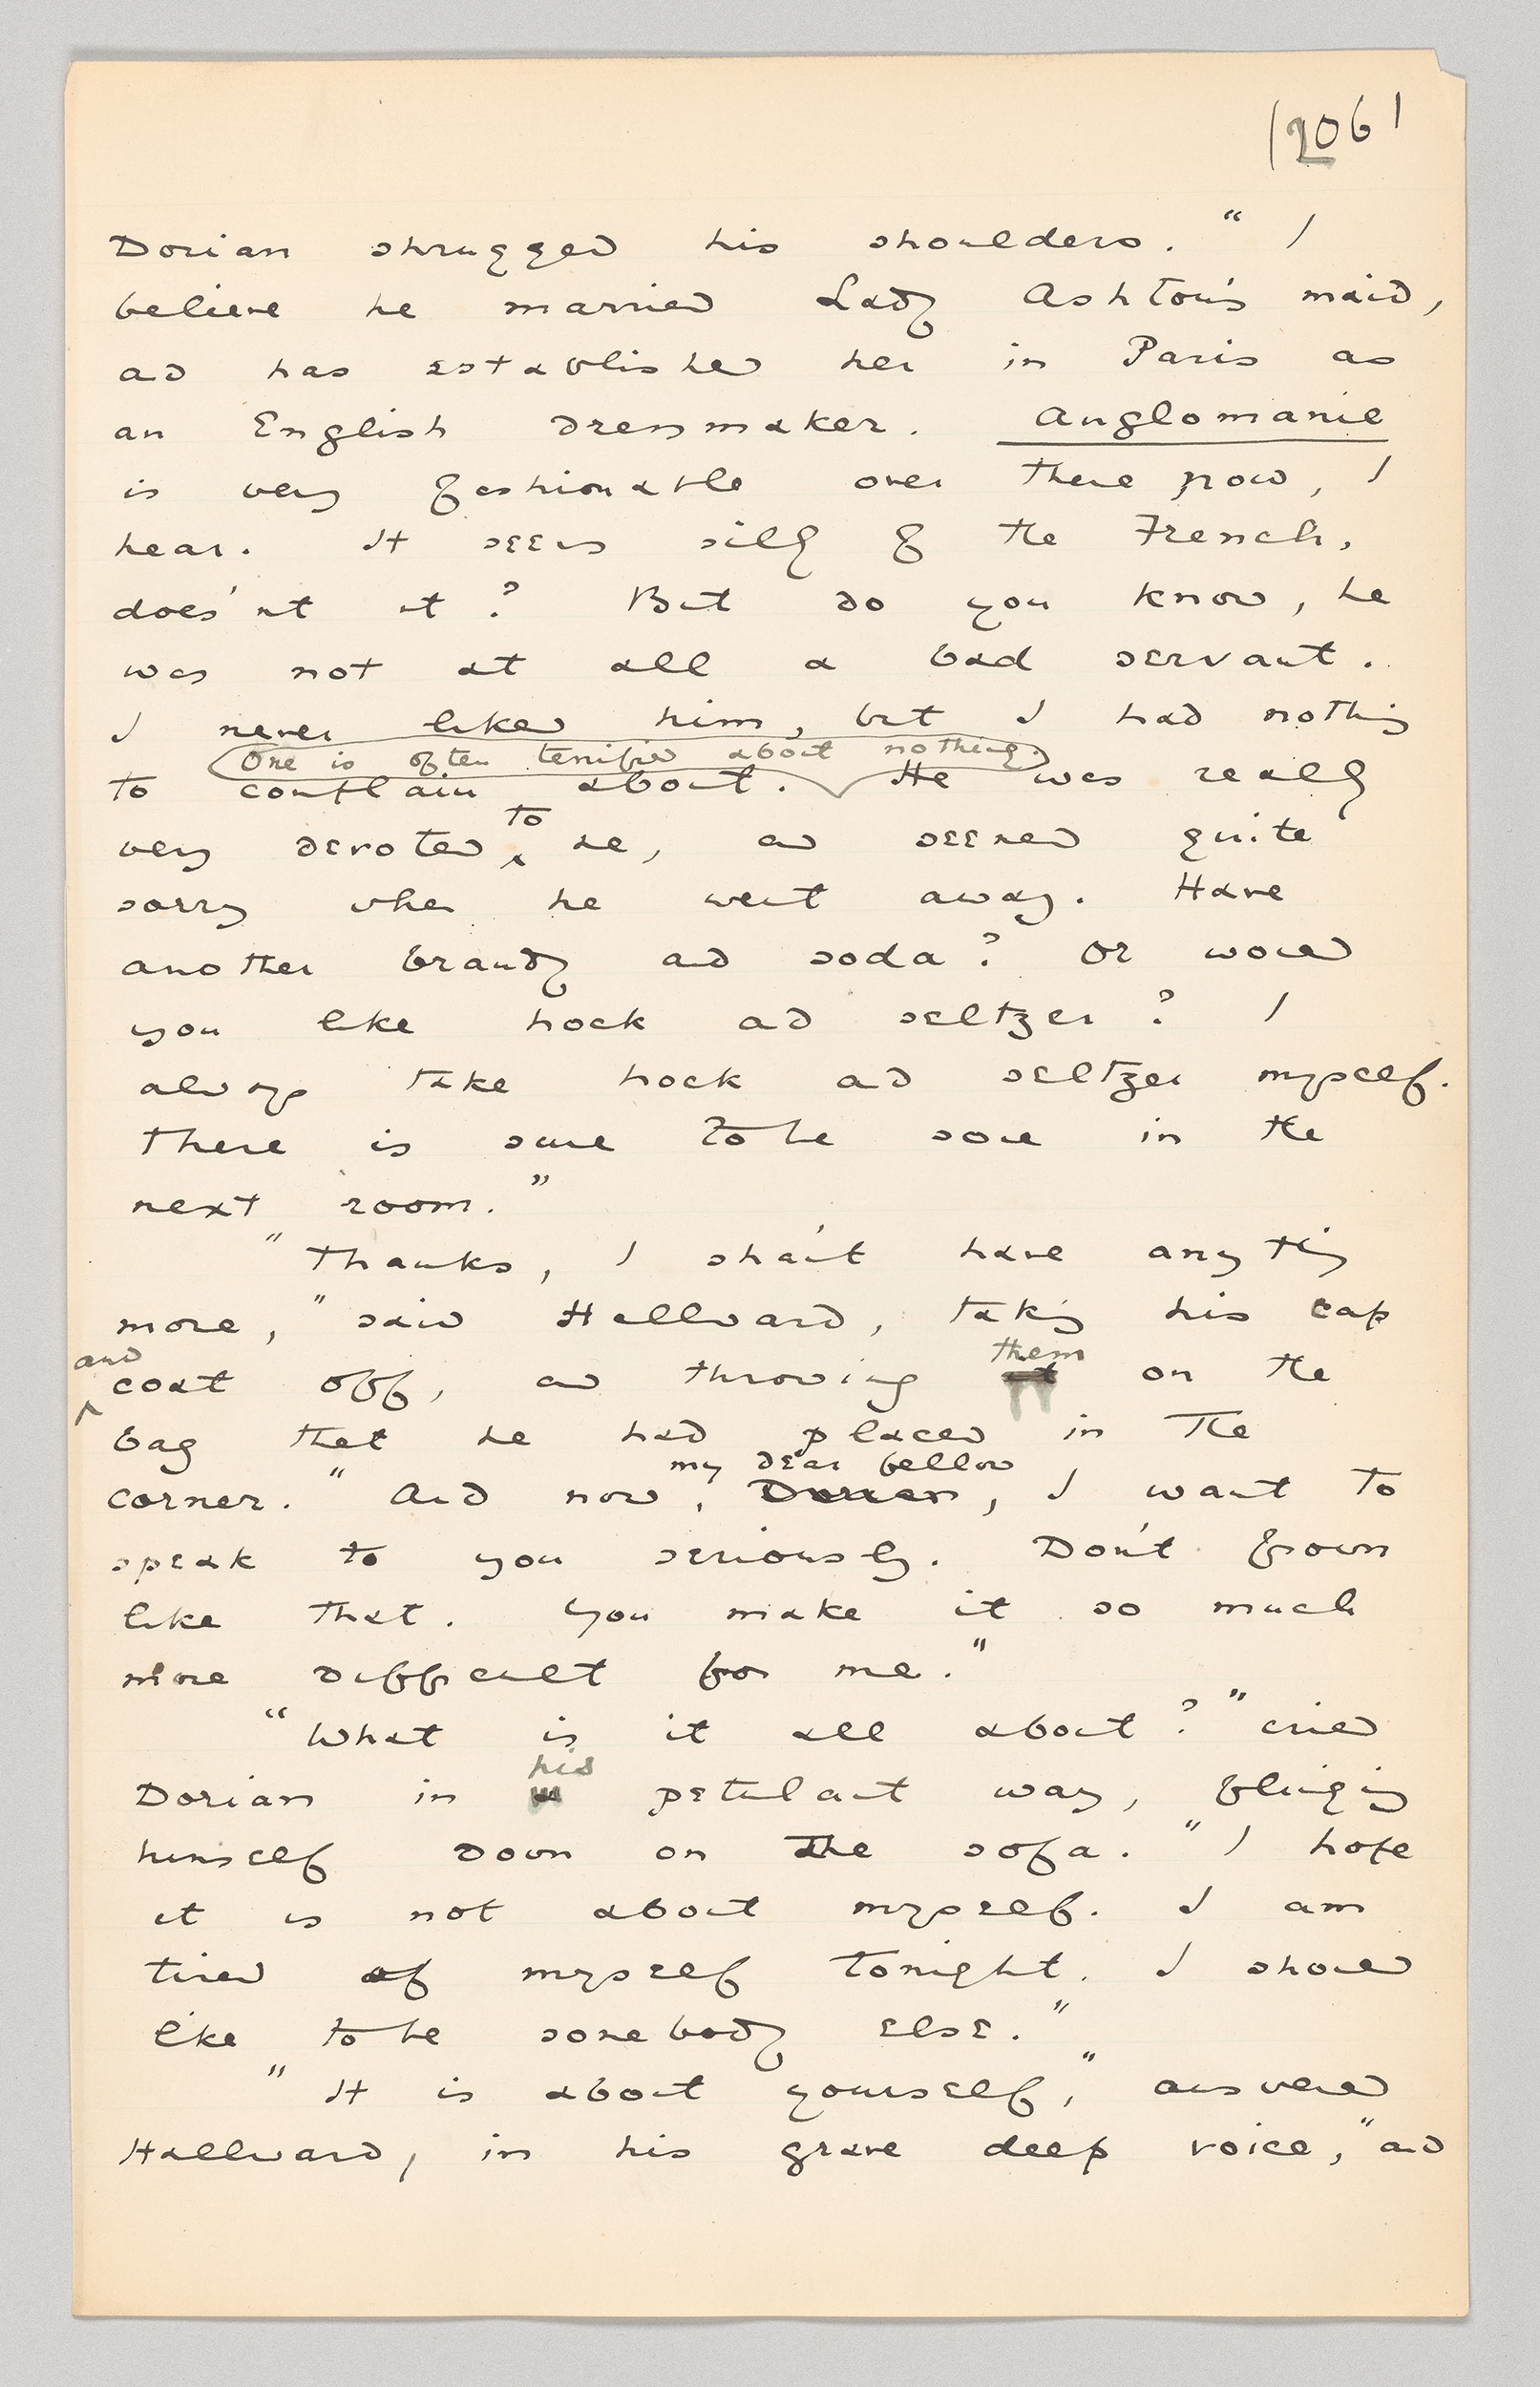 (206)
Dorian shrugged his shoulders. "I
believe he married Lady Ashton's maid,
and has established her in Paris as
an English dressmaker. Anglomanie
is very fashionable over there now, I
hear. It seems silly of the French,
does'nt it? But do you know, he
was not at all a bad servant.
I never liked him, but I had nothing
One is often terrified about nothing.
to complain about. He was really
to
very devoted me, and seemed quite
sorry when he went away. Have
another brandy and soda? Or would
you like hock and seltzer? I
always take hock and seltzer myself.
There is sure to be some in the
next room."
"Thanks, I sha'nt have anything
more," said Hallward, taking his cap
and them
coat off, and throwing it on the
bag that he had placed in the
my dear fellow
corner. "And now, Dorian, I want to
speak to you seriously. Don't frown
like that. You make it so much
more difficult for me."
"What is it all about?" cried
his
Dorian in a petulant way, flinging
himself down on the sofa. "I hope
it is not about myself. I am
tired of myself tonight. I should
like to be somebody else."
"It is about yourself," answered
Hallward, in his grave deep voice, "and